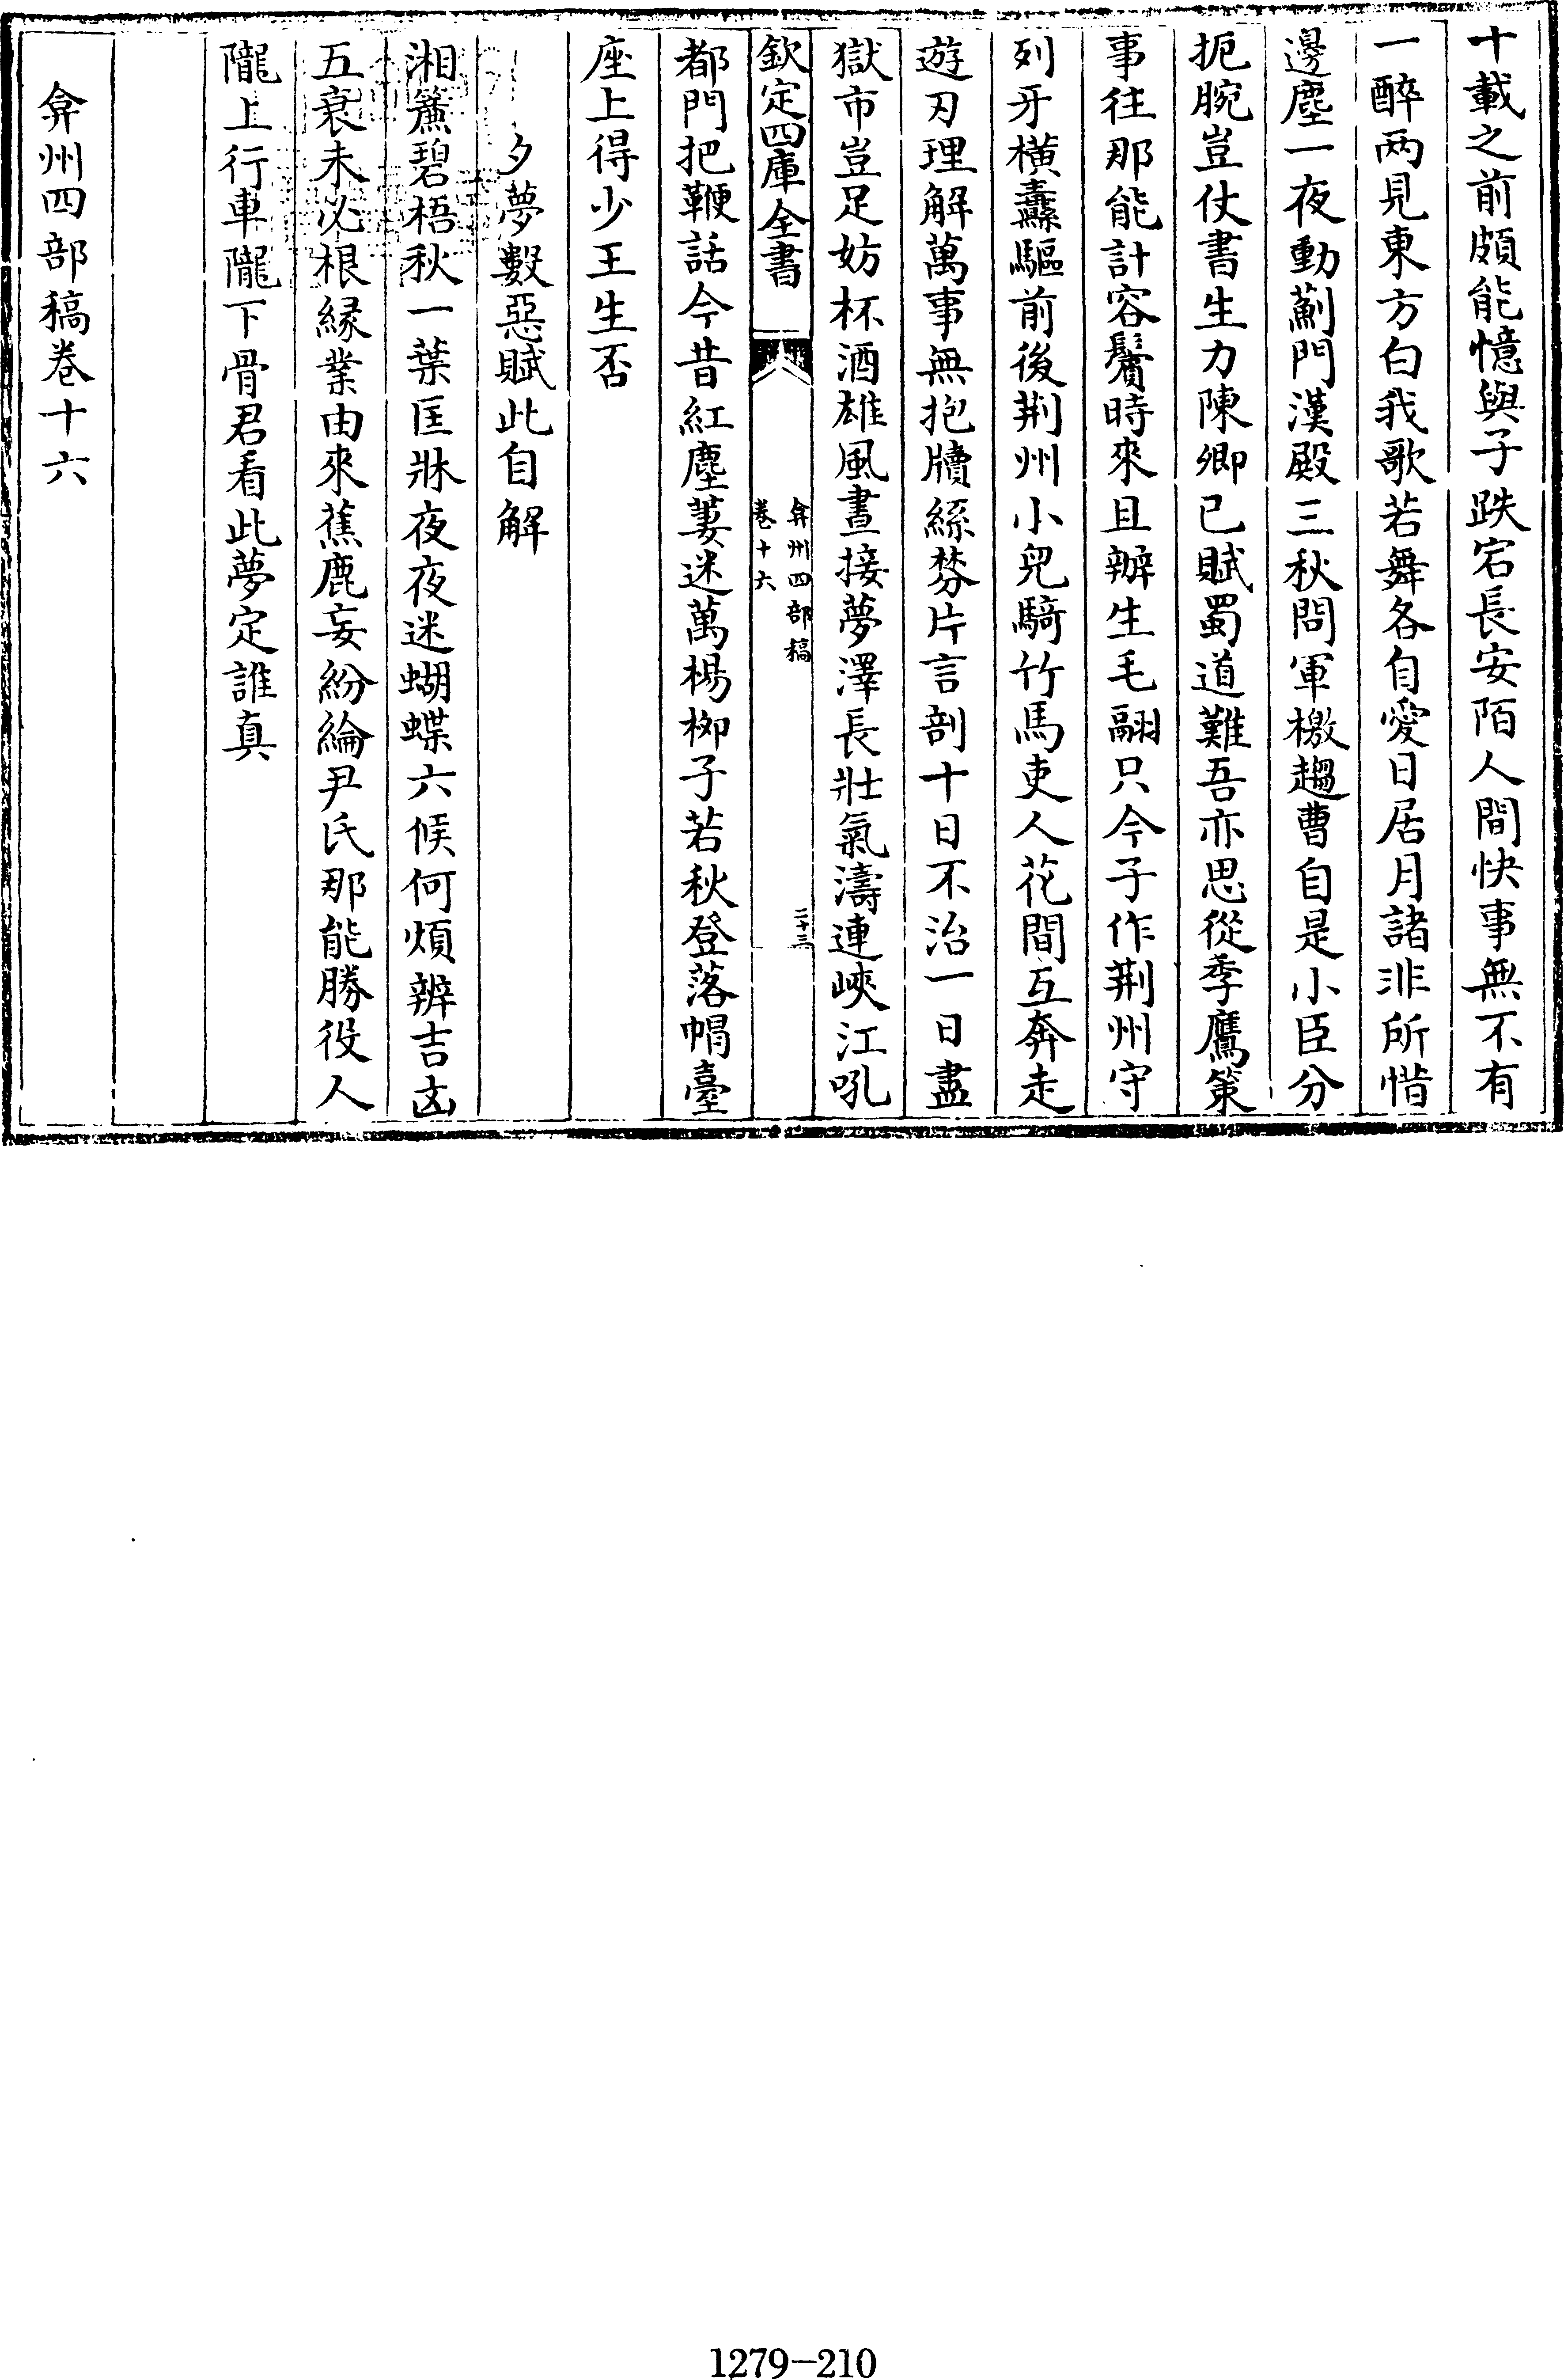 十載之前頗能憶與子跌宕長安陌人間快事無不有
一醉兩見東方白我歌若舞各自愛日居月諸非所惜
邊塵一夜動薊門漢殿三秋問軍檄趨曹自是小臣分
扼腕豈仗書生力陳卿已賦蜀道難吾亦思從季鷹策
事往那能計容鬢時來且辦生毛翮只今子作荆州守
列牙橫纛驅前後荆州小兒騎竹馬吏人花間互奔走
遊刃理解萬事無抱牘絲棼片言剖十日不治一日盡
獄市豈足妨杯酒雄風晝接夢澤長壯氣濤連峽江吼
欽定四庫全書
弇州四部稿
卷十六
二十三
都門把鞭話今昔紅塵萋迷萬楊柳子若秋登落帽臺
座上得少王生否
夕夢數惡賦此自解
湘簾碧梧秋一葉匡牀夜夜迷蝴蝶六候何煩辨吉凶
五衰未必根緣業由來蕉鹿妄紛綸尹氏那能勝役人
隴上行車隴下骨君看此夢定誰真
弇州四部稿卷十六
1279-210